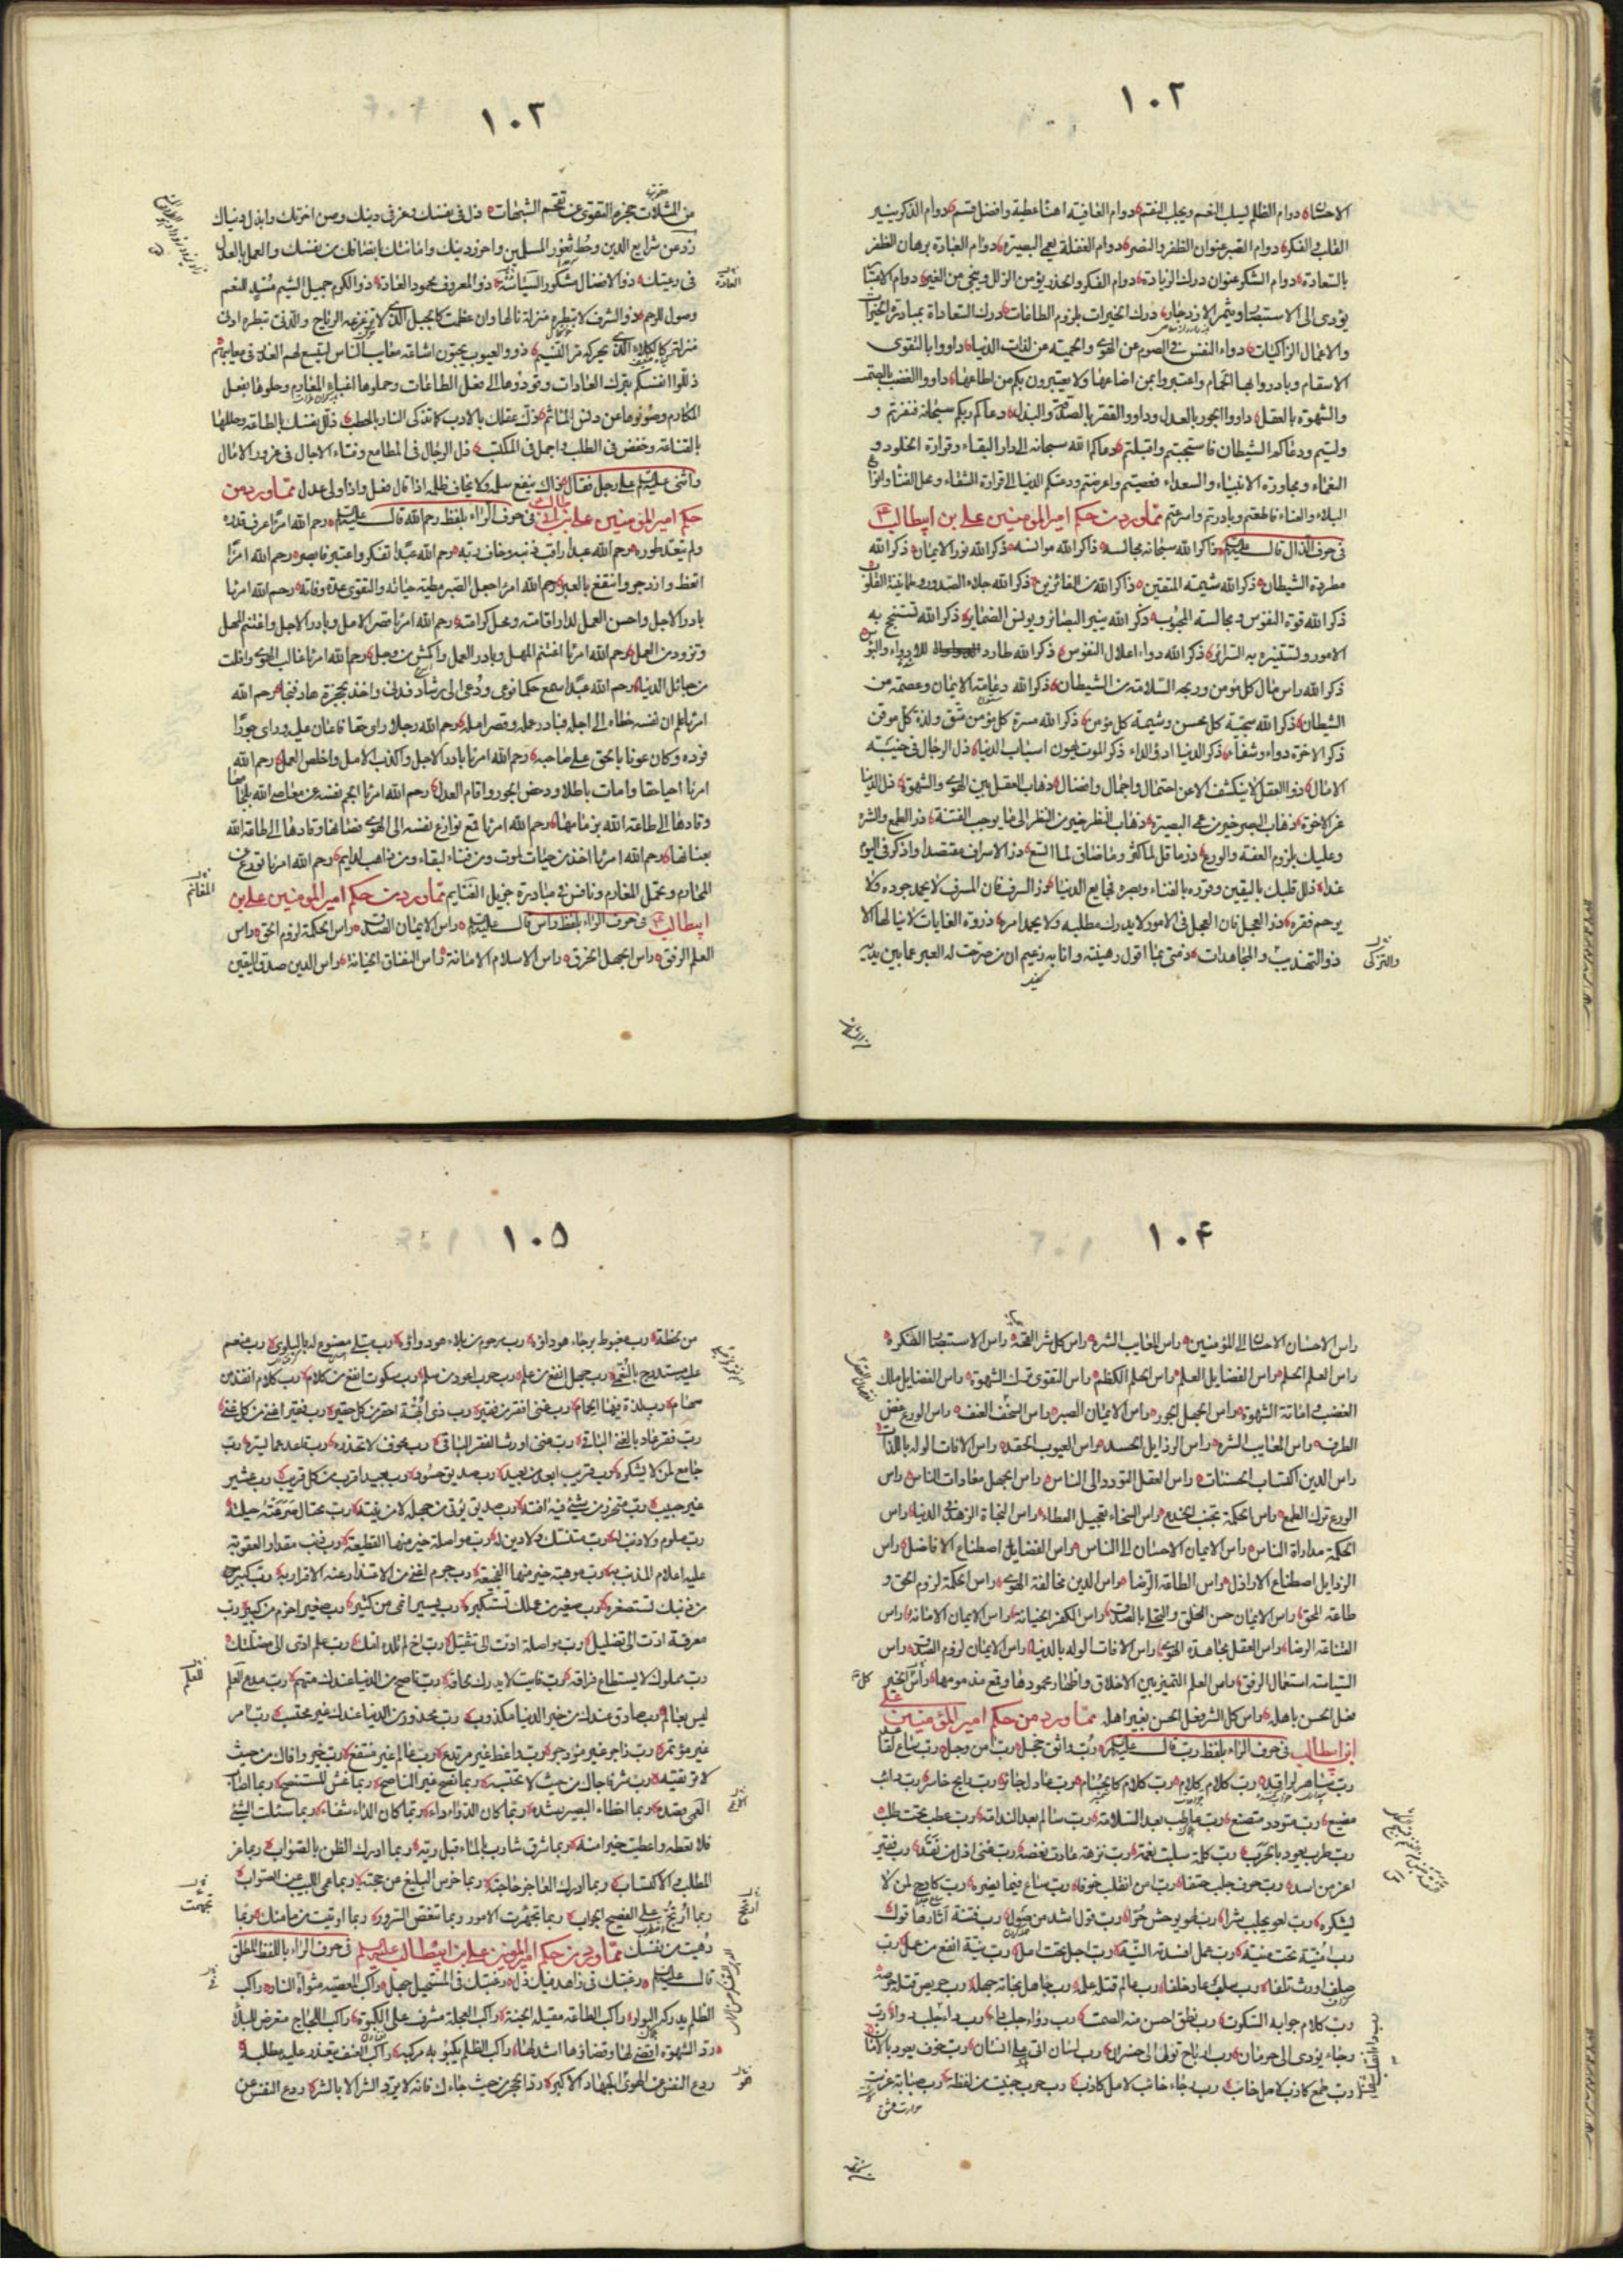 ١٠٢
الاحسان دوام الظلم يسلب النعم ويجلب النقم دوام العافية اهنأ عطية وافضل قسم دوام الذكر ينير
القلب والفكر دوام الصبر عنوان الظفر والنصر دوام الغفلة يعمي البصيرة دوام العبادة برهان الظفر
بالسعادة دوام الشكر عنوان درك الزيادة دوام الفكر والحذر يؤمن الزلل وينجي من الغير دوام الاعتبار
يؤدى الى الاستبصار ويثمر الازدجار درك الخيرات بلزوم الطاعات درك السعادة بمبادرة الخيرات
والاعمال الزاكيات دواء النفس في الصوم عن الهوى والحمية من لذات الدنيا داووا بالتقوى
الاسقام وبادروا بها الحمام واعتبروا بمن اضاعها ولا يعتبرن بكم من اطاعها داووا الغضب بالصمت
والشهوة بالعقل داووا الجور بالعدل وداووا الفقر بالصدقة والبذل دعاكم ربكم سبحانه فنفرتم و
وليتم ودعاكم الشيطان فاستجبتم واقبلتم دعاكم الله سبحانه الى دار البقاء وقرارة الخلود و
النعماء ومجاورة الانبياء والسعداء فعصيتم واعرضتم ودعتكم الدنيا الى قرارة الشقاء ومحل الفناء وانواع
البلاء والعناء فاطعتم وبادرتم واسرعتم مما ورد من حكم امير المؤمنين على بن ابيطالب
فى حرف الذال قال عليه السلام ذاكر الله سبحانه مجالسه ذاكر الله موانسه ذكر الله نور الايمان ذكر الله
مطردة الشيطان ذكر الله شيمة المتقين ذاكر الله من الفائزين ذكر الله جلاء الصدور وطمانينة القلوب
ذكر الله قوة النفوس ومجالسة المحبوب ذكر الله ينير البصائر ويونس الضمائر ذكر الله تستنجح به
الامور وتستنير به السرائر ذكر الله دواء اعلال النفوس ذكر الله طارد للادواء والبؤس
ذكر الله راس مال كل مؤمن وربحه السلامة من الشيطان ذكر الله دعامة الايمان وعصمة من
الشيطان ذكر الله سجية كل محسن وشيمة كل مؤمن ذكر الله مسرة كل متق ولذة كل موقن
ذكر الاخرة دواء وشفاء ذكر الدنيا ادوء الداء ذكر الموت يهون اسباب الدنيا ذل الرجال فى خيبة
الامال ذو العقل لا ينكشف الا عن احتمال واجمال وافضال ذهاب العقل بين الهوى والشهوة ذل الدنيا
عز الاخرة ذهاب البصر خير من عمى البصيرة ذهاب النظر خير من النظر الى ما يوجب الفتنة ذر الطمع والشره
وعليك بلزوم العفة والورع ذر ما قل لما كثر وما ضاق لما اتسع ذر الاسراف مقتصدا واذكر فى اليوم
غدا ذلل قلبك باليقين وقرره بالفناء وبصره فجايع الدنيا ذر السرف فان المسرف لا يحمد جوده ولا
يرحم فقره ذر العجل فان العجل فى الامور لا يدرك مطلبه ولا يحمد امره ذروة الغايات لا ينالها الا
ذو التهذيب والمجاهدات ذمتى بما اقول رهينة وانا به زعيم ان من صرحت له العبر عما بين يديه
والتزكى
١٠٣
من المثلات حجزه التقوى عن تقحم الشبهات ذل فى نفسك وعز فى دينك وصن اخرتك وابذل دنياك
ذد عن شرايع الدين وحط ثغور المسلمين واحرز دينك وامانتك بانصافك من نفسك والعمل بالعدل
فى رعيتك ذو الافضال مشكور السيادة ذو المعروف محمود العادة ذو الكرم جميل الشيم مسد للنعم
وصول للرحم ذو الشرف لا تبطره منزلة نالها وان عظمت كالجبل الذى لا تزعزعه الرياح والدنى تبطره ادنى
منزلة كالكلاء الذى يحركه مر النسيم ذوو العيوب يحبون اشاعة معايب الناس ليتسع لهم العذر فى معايبهم
ذللوا انفسكم بترك العادات وقودوها الى فعل الطاعات وحملوها اعباء المغارم وحلوها بفعل
المكارم وصونوها عن دنس الماثم ذك عقلك بالادب كما تذكى النار بالحطب ذلل نفسك بالطاعة وحلها
بالقناعة وخفض فى الطلب واجمل فى المكتسب ذل الرجال فى المطامع وفناء الاجال فى غرور الامال
واثنى عليه السلام على رجل فقال ذاك ينفع سلمه ولا يخاف ظلمه اذا قال فعل واذا ولى عدل مما ورد من
حكم امير المؤمنين على بن ابى طالب فى حرف الراء بلفظ رحم الله قال عليه السلام رحم الله امرءا عرف قدره
ولم يتعد طوره رحم الله عبدا راقب ذنبه وخاف ربه رحم الله عبدا تفكر واعتبر فابصر رحم الله امرءا
اتعظ وازدجر وانتفع بالعبر رحم الله امرءا جعل الصبر مطية حياته والتقوى عدة وفاته رحم الله امرءا
بادر الاجل واحسن العمل لدار اقامته ومحل كرامته رحم الله امرءا قصر الامل وبادر الاجل واغتنم المهل
وتزود من العمل رحم الله امرءا اغتنم المهل وبادر العمل واكمش من وجل رحم الله امرءا غالب الهوى وافلت
من حبائل الدنيا رحم الله عبدا سمع حكما فوعى ودعى الى رشاد فدنى واخذ بحجزة هاد فنجا رحم الله
امرءا علم ان نفسه خطاه الى اجله فبادر عمله وقصر امله رحم الله رجلا راى حقا فاعان عليه وراى جورا
فرده وكان عونا بالحق على صاحبه رحم الله امرءا بادر الاجل واكذب الامل واخلص العمل رحم الله
امرءا احيا حقا وامات باطلا ودحض الجور واقام العدل رحم الله امرءا الجم نفسه عن معاصى الله بلجامها
وقادها الى طاعة الله بزمامها رحم الله امرءا قمع نوازع نفسه الى الهوى فصانها وقادها الى طاعة الله
بعنانها رحم الله امرءا اخذ من حيات لموت ومن فناء لبقاء ومن ذاهب لدايم رحم الله امرءا تورع عن
المحارم وتحمل المغارم ونافس فى مبادرة جزيل الغنايم مما ورد من حكم امير المؤمنين على بن
ابيطالب فى حرف الراء بلفظ راس قال عليه السلام راس الايمان الصدق راس الحكمة لزوم الحق راس
العلم الرفق راس الجهل الخرق راس الاسلام الامانة راس النفاق الخيانة راس الدين صدق اليقين
المغانم
١٠۴
راس الاحسان الاحسان الى المؤمنين راس المعايب الشره راس كل شر القحة راس الاستبصار الفكرة
راس العلم الحلم راس الفضايل العلم راس الحلم الكظم راس التقوى ترك الشهوة راس الفضايل ملك
الغضب واماتة الشهوة راس الجهل الجور راس الايمان الصبر راس السخف العنف راس الورع غض
الطرف راس المعايب الشره راس الرذايل الحسد راس العيوب الحقد راس الافات الوله باللذات
راس الدين اكتساب الحسنات راس العقل التودد الى الناس راس الجهل معادات الناس راس
الورع ترك الطمع راس الحكمة تجنب الخدع راس السخاء تعجيل العطاء راس النجاة الزهد فى الدنيا راس
الحكمة مداراة الناس راس الايمان الاحسان الى الناس راس الفضايل اصطناع الافاضل راس
الرذايل اصطناع الاراذل راس الطاعة الرضا راس الدين مخالفة الهوى راس الحكمة لزوم الحق و
طاعة المحق راس الايمان حسن الخلق والتحلى بالصدق راس الكفر الخيانة راس الايمان الامانة راس
القناعة الرضا راس العقل مجاهدة الهوى راس الافات الوله بالدنيا راس الايمان لزوم الصدق راس
السياسة استعمال الرفق راس العلم التمييز بين الاخلاق واظهار محمودها وقمع مذمومها راس الخير
فعل الحسن باهله راس كل الشر فعل الحسن بغير اهله مما ورد من حكم امير المؤمنين على
ابن ابيطالب فى حرف الراء بلفظ رب قال عليه السلام رب واثق خجل رب امن وجل رب ساع لقاعد
رب ساهر لراقد رب كلام كلام رب كلام كالحسام رب عادل جائر رب رابح خاسر رب دائب
مضيع رب متودد متصنع رب عاطب بعد السلامة رب سالم بعد الندامة رب عطب تحت طلب
رب طرب يعود بالحرب رب كلمة سلبت نعمة رب نزهة عادت نغصة رب غنى اذل من نقد رب فقير
اعز من اسد رب حرف جلب حتفا رب امن انقلب خوفا رب ساع فيما يضره رب كادح لمن لا
يشكره رب لغو يجلب شرا رب لهو يوحش حرا رب قول اشد من صول رب فتنة اثارها قول
رب امنية تحت منية رب عمل افسدته النية رب اجل تحت امل رب نية انفع من عمل رب
صلف اورث تلفا رب سلف عاد خلفا رب عالم قتله علمه رب جاهل نجاته جهله رب حريص قتله حرصه
رب كلام جوابه السكوت رب نطق احسن منه الصمت رب دواء جلب داء رب داء جلب دواء رب
رجاء يؤدى الى حرمان رب ارباح تؤل الى خسران رب لسان اتى على انسان رب خوف يعود بالامان
رب طمع كاذب لامل خائب رب رجاء خائب لامل كاذب رب حرب جنيت من لفظة رب صبابة غرست
١٠۵
من لحظة رب مغبوط برجاء هو داؤه رب مرحوم من بلاء هو دواؤه رب مبتلى مصنوع له بالبلوى رب منعم
عليه مستدرج بالنعمى رب جهل انفع من علم رب حرب اعود من سلم رب سكوت ابلغ من كلام رب كلام انفذ من
سهام رب لذة فيها الحمام رب غنى افقر من فقير رب ذى ابهة احقر من كل حقير رب فقير اغنى من كل غنى
رب فقر عاد بالغنى الباقى رب غنى اورث الفقر الباقى رب مخوف لا تحذره رب قاعد عما يسره رب
جامع لمن لا يشكره رب قريب ابعد من بعيد رب صديق حسود رب بعيد اقرب من كل قريب رب عشير
غير حبيب رب متحرز من شىء فيه افته رب صديق يؤتى من جهله لا من نيته رب محتال صرعته حيلته
رب ملوم ولا ذنب له رب متنسك ولا دين له رب مواصلة خير منها القطيعة رب ذنب مقدار العقوبة
عليه اعلام المذنب به رب موهبة خير منها الفجيعة رب جرم اغنى عن الاعتذار عنه الاقرار به رب كبير
من ذنبك تستصغره رب صغير من عملك تستكبره رب يسير انمى من كثير رب صغير احزم من كبير رب
معرفة ادت الى تضليل رب مواصلة ادت الى تثقيل رب اخ لم تلده امك رب علم ادى الى مضلتك
رب مملوك لا يستطاع فراقه رب فايت لا يدرك لحاقه رب ناصح من الدنيا عندك متهم رب مدع للعلم
ليس بعالم رب صادق عندك من خير الدنيا مكذوب رب محذور من الدنيا عندك غير محتسب رب امر
غير مؤتمر رب زاجر غير مزدجر رب واعظ غير مرتدع رب عالم غير منتفع رب خير وافاك من حيث
لا ترتقبه رب شر فاجاك من حيث لا تحتسبه ربما نصح غير الناصح ربما غش المستنصح ربما اصاب
العمى قصده ربما اخطاء البصير رشده ربما كان الدواء داء ربما كان الداء شفاء ربما سئلت الشىء
فلا تعطه واعطيت خيرا منه ربما شرق شارب بالماء قبل ريه ربما ادرك الظن بالصواب ربما عز
المطلب والاكتساب ربما ادرك العاجز حاجته ربما خرس البليغ عن حجته ربما عمى اللبيب عن الصواب
ربما ارتج على الفصيح الجواب ربما تجهمت الامور ربما تنغص السرور ربما اوتيت من مامنك ربما
دهيت من نفسك مما ورد من حكم امير المؤمنين على بن ابيطالب عليه السلام فى حرف الراء باللفظ المطلق
قال عليه السلام رغبتك فى زاهد فيك ذل رغبتك فى المستحيل جهل راكب المعصية مثواه النار راكب
الظلم يدركه البوار راكب الطاعة مقيله الجنة راكب العجلة مشرف على الكبوة راكب اللجاج متعرض للبلاء
رد الشهوة اقضى لها وقضاؤها اشد لها راكب الظلم يكبو به مركبه راكب العنف يتعذر عليه مطلبه
ردع النفس عن الهوى الجهاد الاكبر رد الحجر من حيث جاءك فانه لا يرد الشر الا بالشر ردع النفس عن
للعلم
تجهمت